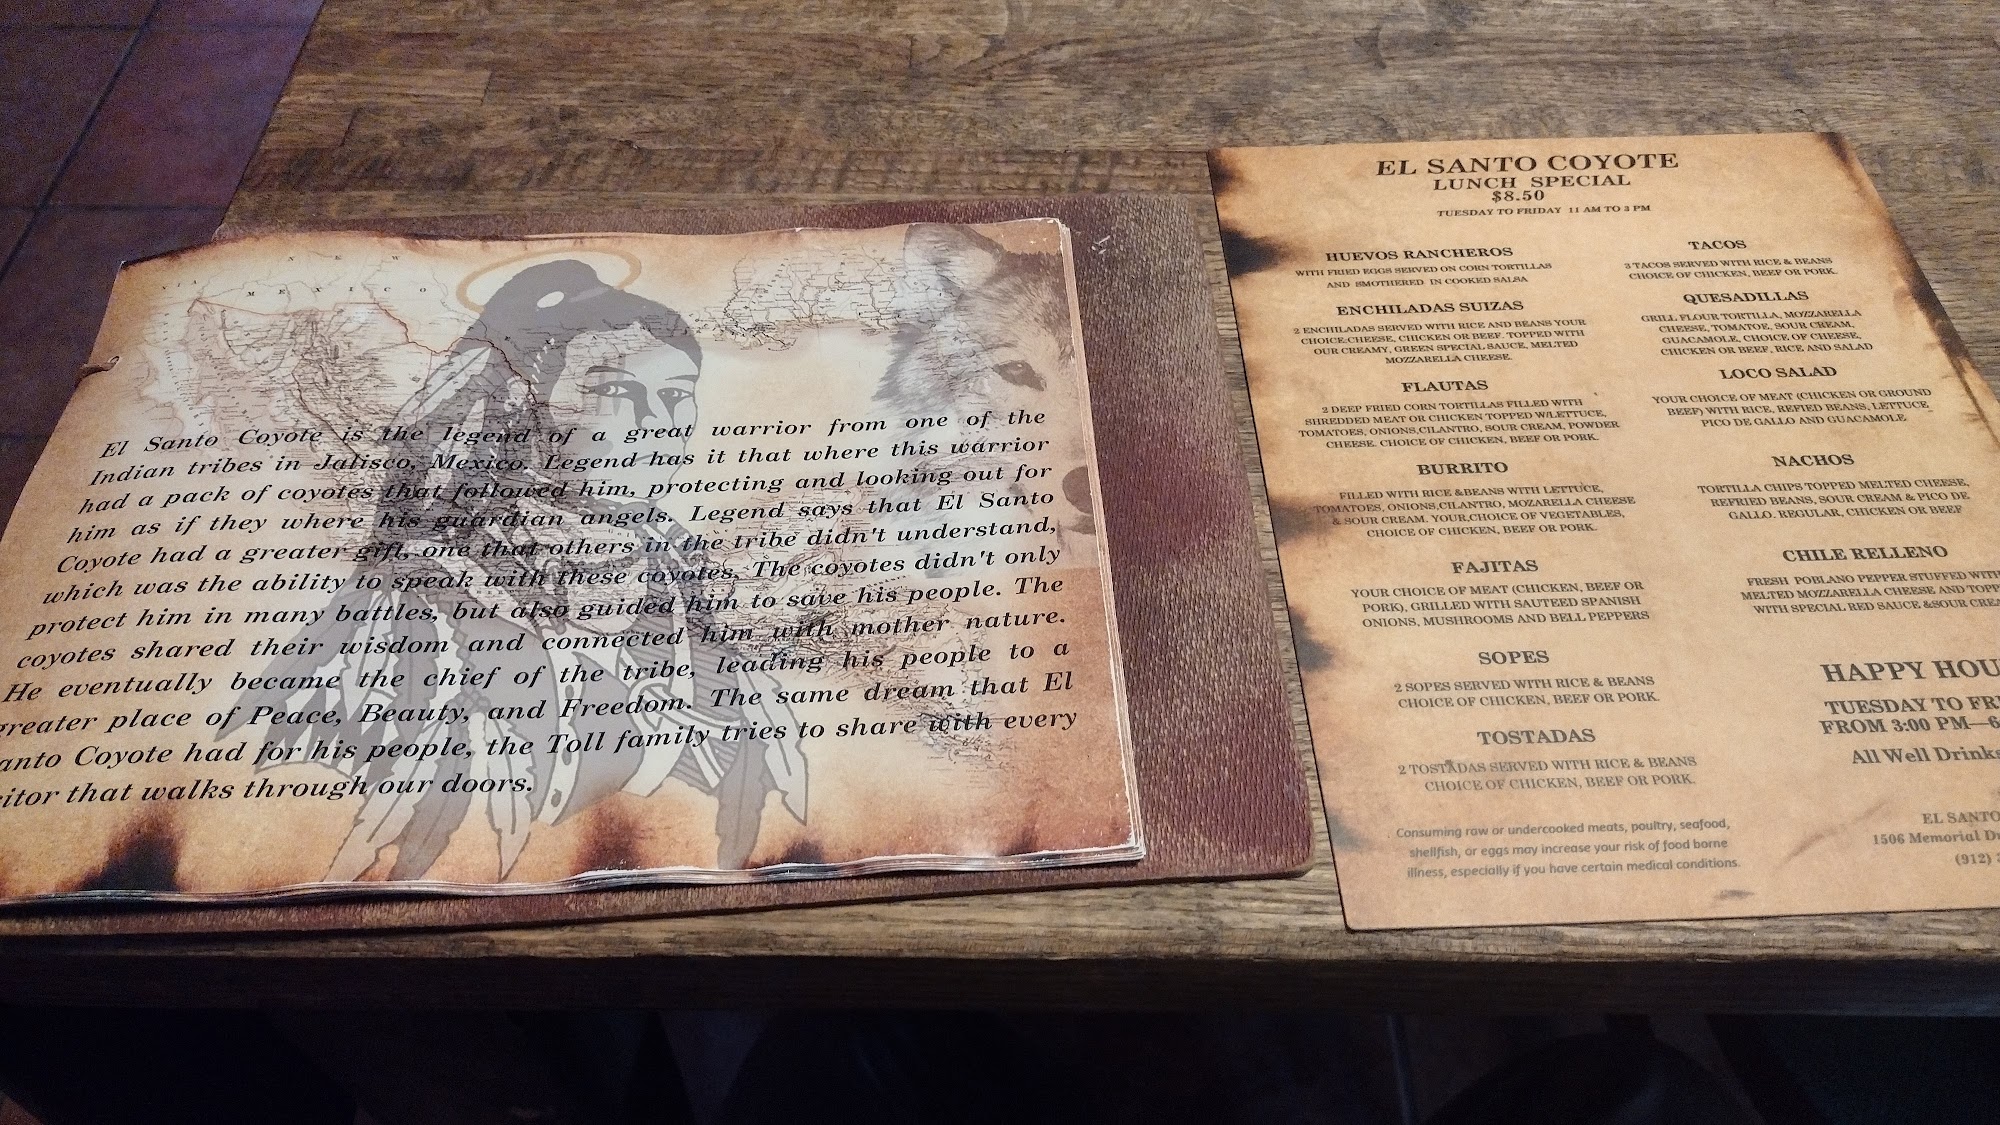 N E W
M E X I C O
El Santo Coyote is the legend of a great warrior from one of the
Indian tribes in Jalisco, Mexico. Legend has it that where this warrior
had a pack of coyotes that followed him, protecting and looking out for
him as if they where his guardian angels. Legend says that El Santo
Coyote had a greater gift, one that others in the tribe didn't understand,
which was the ability to speak with these coyotes. The coyotes didn't only
protect him in many battles, but also guided him to save his people. The
coyotes shared their wisdom and connected him with mother nature.
He eventually became the chief of the tribe, leading his people to a
greater place of Peace, Beauty, and Freedom. The same dream that El
anto Coyote had for his people, the Toll family tries to share with every
itor that walks through our doors.
EL SANTO COYOTE
LUNCH SPECIAL
$8.50
TUESDAY TO FRIDAY 11 AM TO 3 PM
HUEVOS RANCHEROS
WITH FRIED EGGS SERVED ON CORN TORTILLAS
AND SMOTHERED IN COOKED SALSA
ENCHILADAS SUIZAS
2 ENCHILADAS SERVED WITH RICE AND BEANS YOUR
CHOICE:CHEESE, CHICKEN OR BEEF. TOPPED WITH
OUR CREAMY, GREEN SPECIAL SAUCE, MELTED
MOZZARELLA CHEESE.
FLAUTAS
2 DEEP FRIED CORN TORTILLAS FILLED WITH
SHREDDED MEAT OR CHICKEN TOPPED W/LETTUCE,
TOMATOES, ONIONS,CILANTRO, SOUR CREAM, POWDER
CHEESE. CHOICE OF CHICKEN, BEEF OR PORK.
BURRITO
FILLED WITH RICE &BEANS WITH LETTUCE,
TOMATOES, ONIONS,CILANTRO, MOZARELLA CHEESE
& SOUR CREAM. YOUR,CHOICE OF VEGETABLES,
CHOICE OF CHICKEN, BEEF OR PORK.
FAJITAS
YOUR CHOICE OF MEAT (CHICKEN, BEEF OR
PORK), GRILLED WITH SAUTEED SPANISH
ONIONS, MUSHROOMS AND BELL PEPPERS
SOPES
2 SOPES SERVED WITH RICE & BEANS
CHOICE OF CHICKEN, BEEF OR PORK.
TOSTADAS
2 TOSTADAS SERVED WITH RICE & BEANS
CHOICE OF CHICKEN, BEEF OR PORK.
Consuming raw or undercooked meats, poultry, seafood,
shellfish, or eggs may increase your risk of food borne
illness, especially if you have certain medical conditions.
TACOS
3 TACOS SERVED WITH RICE & BEANS
CHOICE OF CHICKEN, BEEF OR PORK.
QUESADILLAS
GRILL FLOUR TORTILLA, MOZZARELLA
CHEESE, TOMATOE, SOUR CREAM,
GUACAMOLE, CHOICE OF CHEESE,
CHICKEN OR BEEF, RICE AND SALAD
LOCO SALAD
YOUR CHOICE OF MEAT (CHICKEN OR GROUND
BEEF) WITH RICE, REFIED BEANS, LETTUCE,
PICO DE GALLO AND GUACAMOLE
NACHOS
TORTILLA CHIPS TOPPED MELTED CHEESE,
REFRIED BEANS, SOUR CREAM & PICO DE
GALLO. REGULAR, CHICKEN OR BEEF
CHILE RELLENO
FRESH POBLANO PEPPER STUFFED WITH
MELTED MOZZARELLA CHEESE AND TOPP
WITH SPECIAL RED SAUCE &SOUR CREA
HAPPY HOU
TUESDAY TO FRI
FROM 3:00 PM—6
All Well Drinks
EL SANTO
1506 Memorial D
(912) 3